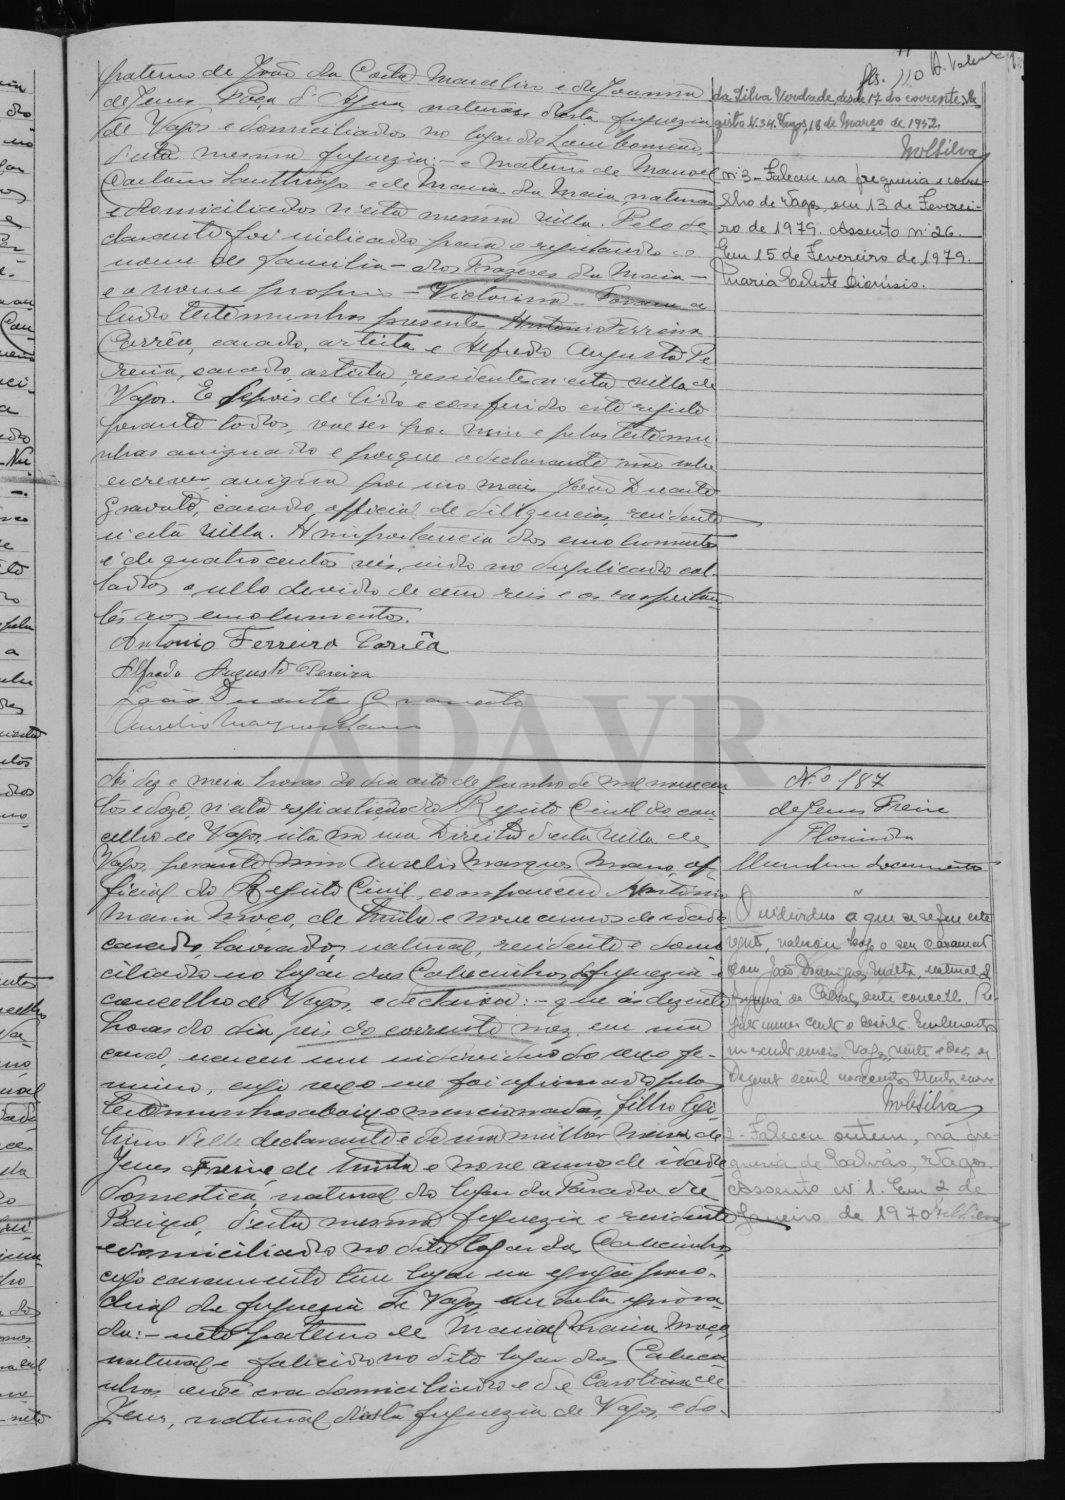 fls. 110 A. Valente
paterno de João da Costa Marcelino e de Joanna
de Jesus Poça d'Agua naturaes d'esta freguezia
de Vagos e domiciliados no logar do Lombomeão
d'esta mesma freguezia; - e materno de Manoel
Caetano Santhiago e de Maria da Maia naturaes
e domiciliados n'esta mesma villa. Pelo de-
clarante foi indicado para o registando o
nome de familia - dos Prazeres da Maia -
e o nome proprio - Victorina - Foram a
tudo testemunhas presentes Antonio Ferreira
Corrêa, casado, artista e Alfredo Augusto Pe-
reira, casado, artista, residentes n'esta villa de
Vagos. E depois de lido e conferido este registo
perante todos, vae ser por mim e pelas testemu-
nhas assignado e porque o declarante não sabe
escrever assigna por seu mais João Duarte
Gravato, casado, official de diligencias, residente
n'esta villa. A importancia dos emolumentos
é de quatrocentos reis, indo no duplicado col-
lados o sello devido de cem reis e os respectan-
tes aos emolumentos.
Antonio Ferreira Corrêa
Alfredo Augusto Pereira
João Duarte Gravato
Aurelio Marques Mano
da Silva Verdade, desde 17 do corrente. Re-
gisto N. 34. Vagos, 18 de Março de 1952.
MolSilva
nº 3 - Faleceu na freguesia e conce-
lho de Vagos, em 13 de Feverei-
ro de 1979. Assento nº 26.
Em 15 de Fevereiro de 1979.
Maria Celeste Dionísio.
ADAVR
Às dez e meia horas do dia oito de Junho de mil novecen-
tos e doze, n'esta repartição do Registo Civil do con-
celho de Vagos, sita na rua Direita d'esta villa de
Vagos, perante mim Aurelio Marques Mano, of-
ficial do Registo Civil, compareceu Antonio
Maria Moço, de trinta e nove annos de idade
casado, lavrador, natural, residente e domi-
ciliado no logar das Cabecinhas, freguezia e
concelho de Vagos, e declarou: - que às dezenove
horas do dia seis do corrente mez em sua
casa, nasceu um individuo do sexo fe-
minino, cujo sexo me foi afirmado pelas
testemunhas abaixo mencionadas, filho legi-
timo d'elle declarante e de sua mulher Maria de
Jesus Freire de trinta e nove annos de idade
domestica, natural do logar da Parada de
Baixo, d'esta mesma freguezia e residente
e domiciliado no dito logar das Cabecinhas,
cujo casamento teve logar na egreja paro-
chial da freguezia de Vagos em data ignora-
da: - neto paterno de Manoel Maria Moço,
natural e falecido no dito logar das Cabeci-
nhas onde era domiciliado e de Carolina de
Jesus, natural d'esta freguezia de Vagos, e do-
N.º 187
de Jesus Freire
Florinda
Nenhum documento
O individuo a que se refere este
registo, realisou hoje o seu casamento
com João Domingues Malta, natural da
freguesia de Calvão, deste concelho. Re-
gisto numero cento e
Vagos, vinte e dois de
mil novecentos trinta e nove
MolSilva
2 - Faleceu ontem, na fre-
guesia de Calvão, Vagos.
Assento nº 1. Em 2 de
Janeiro de 1970